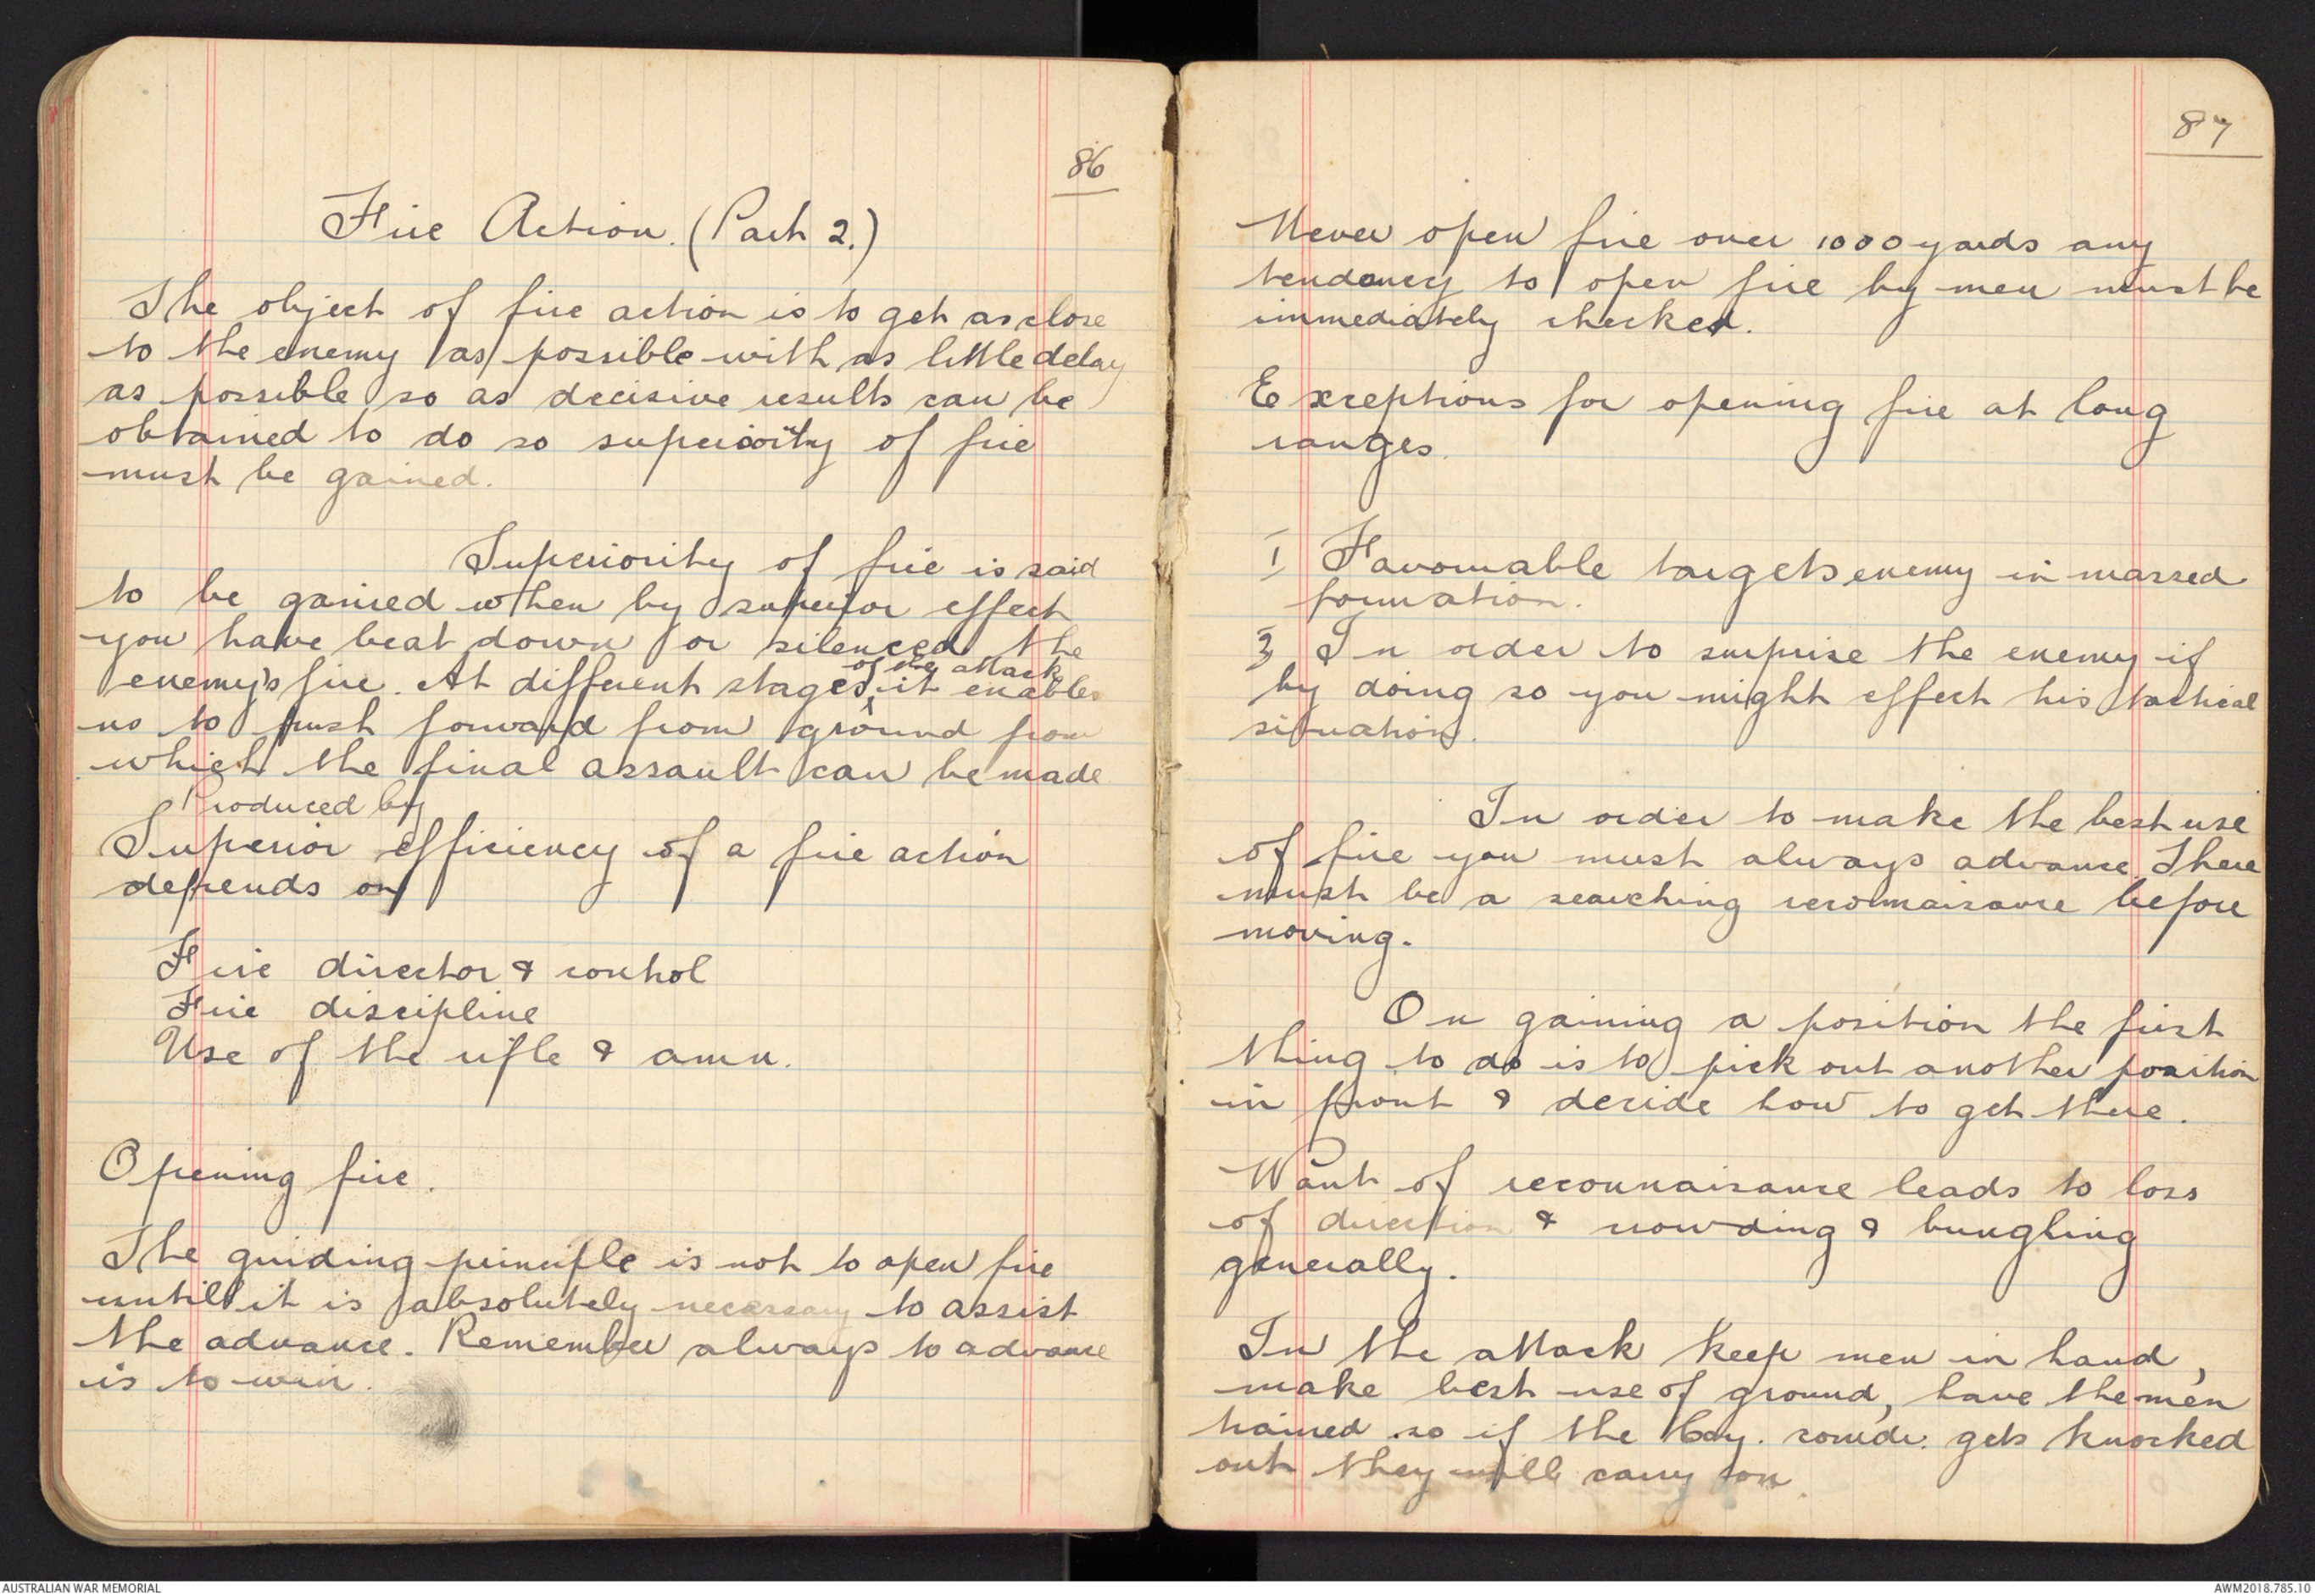 86
Fire Action. (Part 2.)
The object of fire action is to get as close
to the enemy as possible with as little delay
as possible so as decisive results can be
obtained to do so superiority of fire
must be gained.
Superiority of fire is said
to be gained when by superior effect
you have beat down or silenced the
enemy's fire. At different stages of the attack it enables
us to push forward from ground from
which the final assault can be made
Produced by
Superior efficiency of a fire action
depends on
Fire director & control
Fire discipline
Use of the rifle & amn.
Opening fire.
The guiding principle is not to open fire
until it is absolutely necessary to assist
the advance. Remember always to advance
is to win.
87
Never open fire over 1000 yards any
tendency to open fire by men must be
immediately checked.
Exceptions for opening fire at long
ranges.
1 Favourable targets enemy in massed
formation.
3 In order to surprise the enemy if
by doing so you might effect his tactical
situation.
In order to make the best use
of fire you must always advance. There
must be a searching reconnaisance before
moving.
On gaining a position the first
thing to do is to pick out another position
in front & decide how to get there.
Want of reconnaisance leads to loss
of direction & crowding & bungling
generally.
In the attack keep men in hand,
make best use of ground, have the men
trained so if the Coy. comdr. gets knocked
out they will carry on.
AUSTRALIAN WAR MEMORIAL
AWM2018.785.10